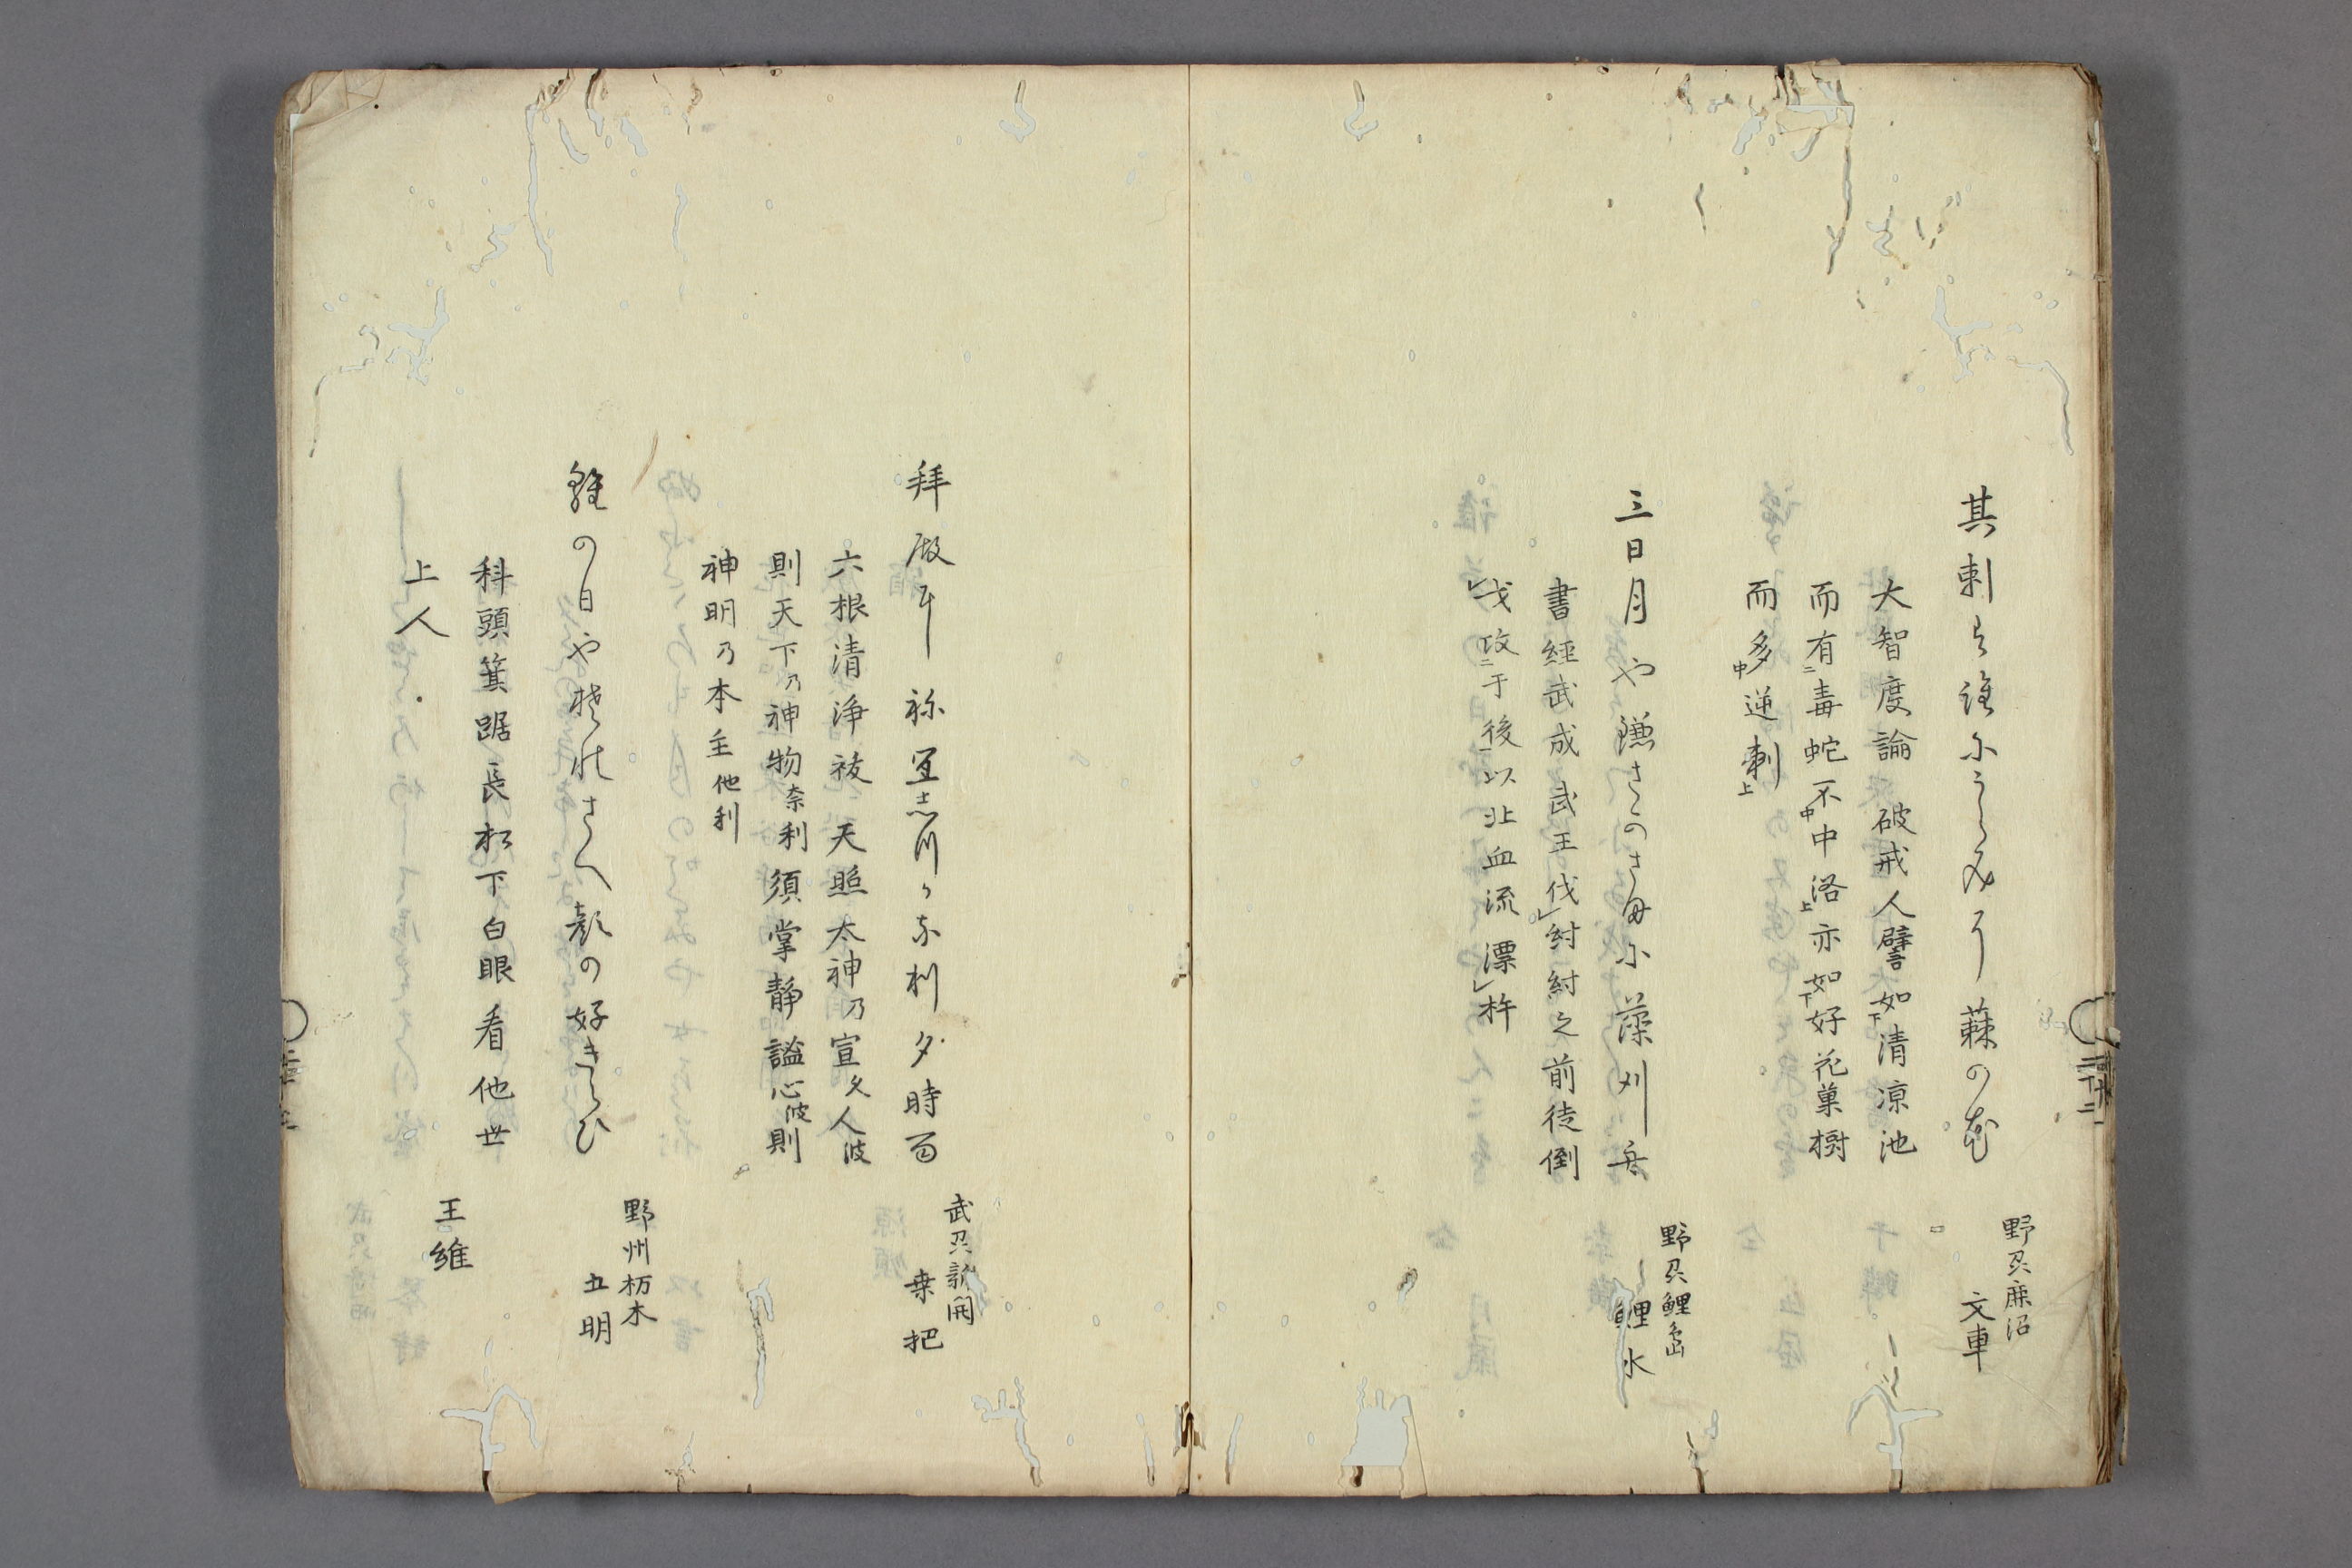 其刺は誰にうらみそ蕀の花
野刕鹿沼
文車
大智度論 破戒人譬如下清凉池
而有二毒蛇不中中洛上亦如下好花菓樹
而多中逆刺上
三日月や鎌さゝのさ毎に藻刈舟
野刕鯉島
鯉水
書経武成武王伐紂紂之前徒倒
戈攻二于後一以北血流漂杵
拜殿に祢宜志川か
夕時雨
武刕新開
乗把
六根清浄祓 天照太神乃宣久人波
則天下乃神物奈利須掌静謐心波則
神明乃本主他利
雛の日や
さへ顔の好きらひ
野州栃木
五明
科頭箕踞長松下白眼看他世
上人
王維